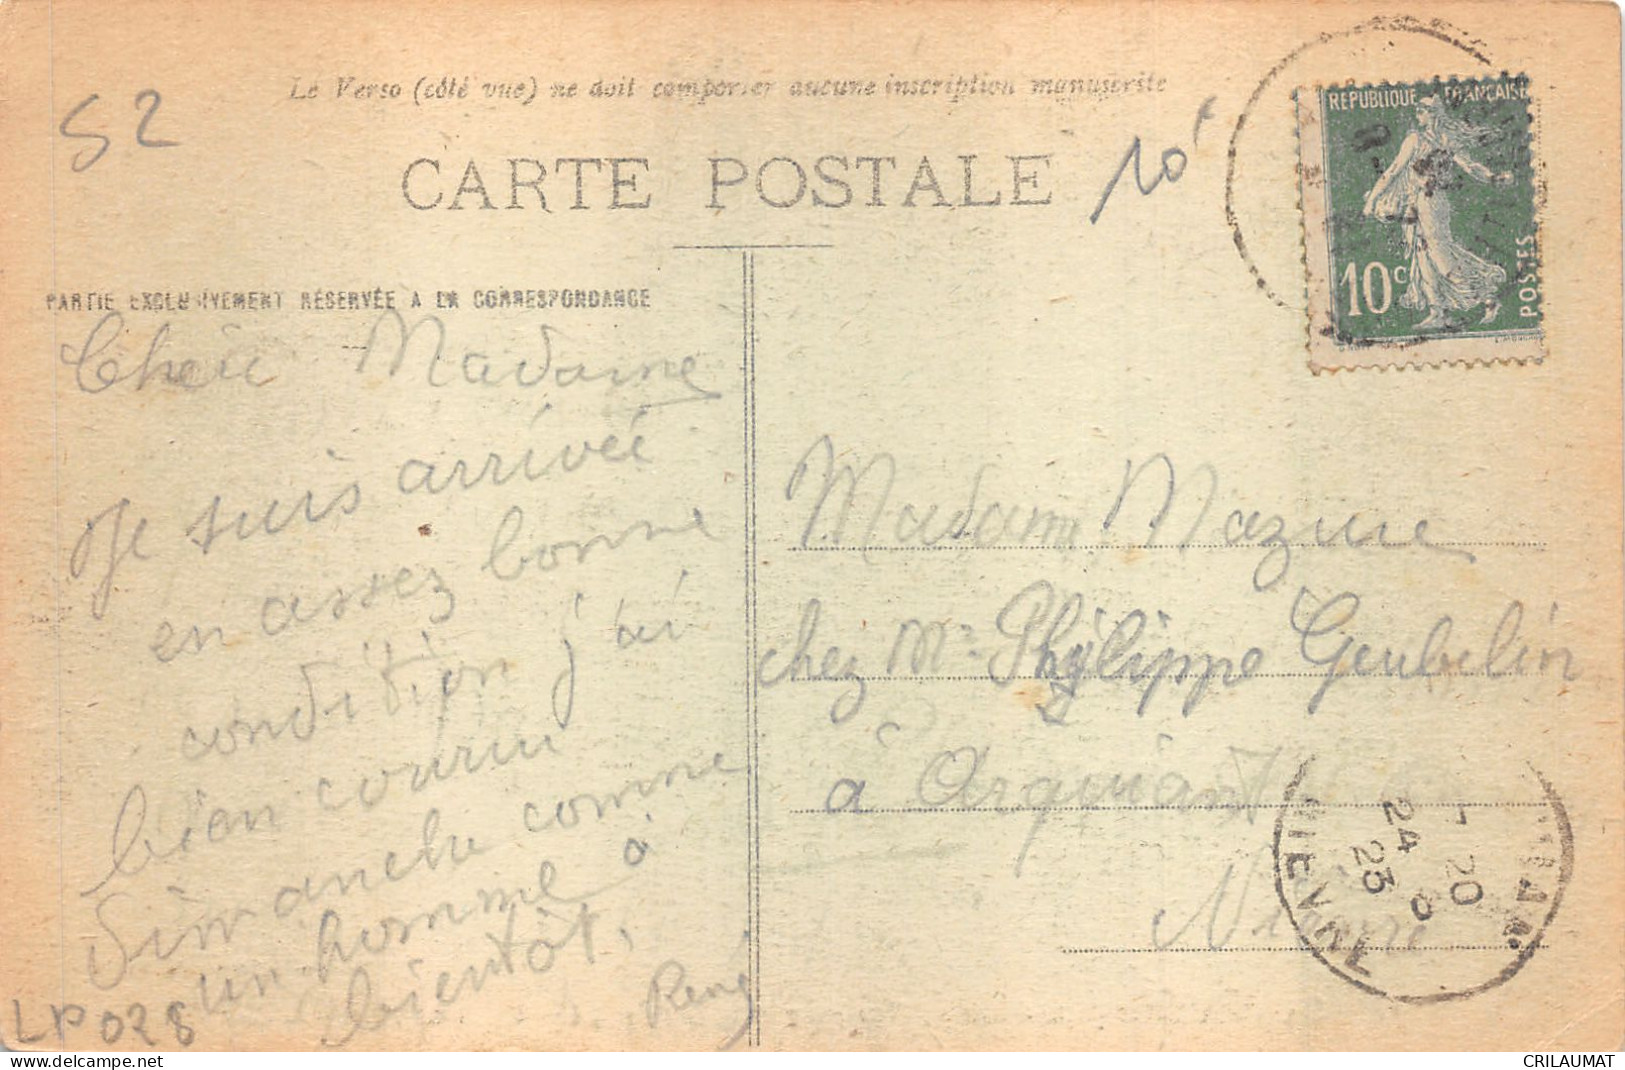 Le Verso (côté vue) ne doit comporter aucune inscription manuscrite
52
CARTE POSTALE
10f
RÉPUBLIQUE FRANÇAISE
10c
POSTES
PARTIE EXCLUSIVEMENT RÉSERVÉE A LA CORRESPONDANCE
Cheie Madame
Je suis arrivée
en assez bonne
condition j'ai
bien couru
dimanche comme
un homme à
bientôt,
René
Madam Mazuie
chez Mr Philippe Geubelin
à Arquian
Nièvre
7 20
24 6
23
NIEVRE
LP028
www.delcampe.net
CRILAUMAT